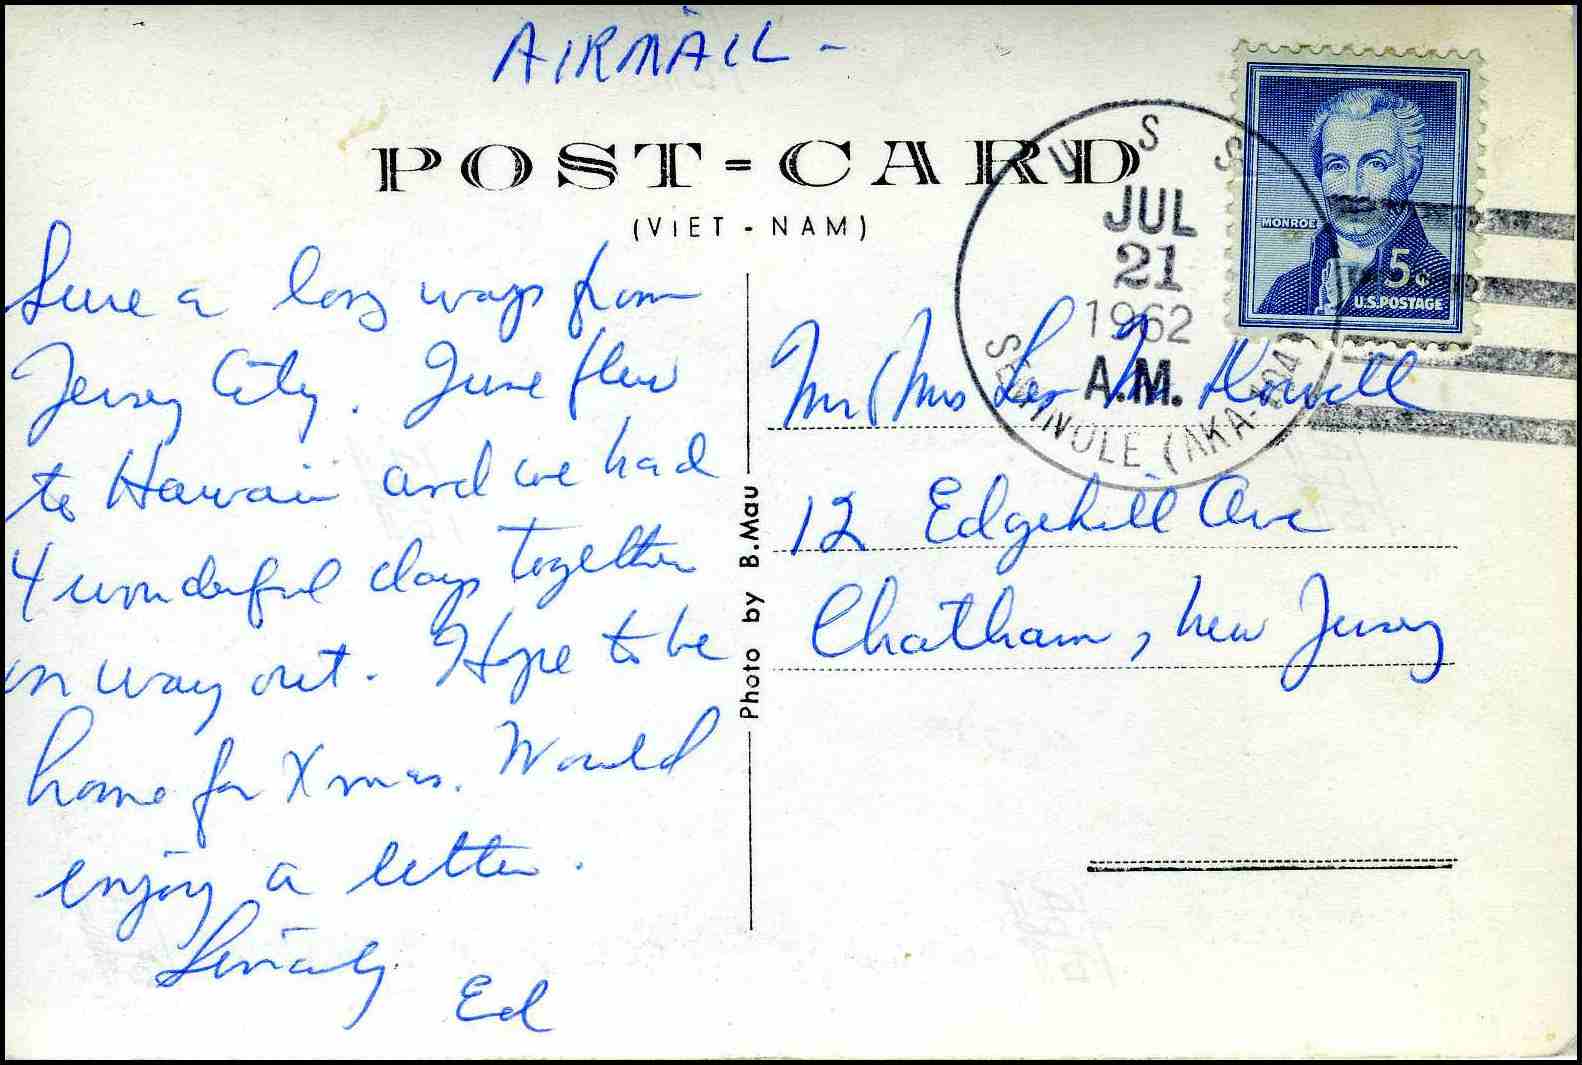 AIRMAIL -
POST-CARD
(VIET-NAM)
U S S
JUL
21
1962
A.M.
SEMINOLE (AKA-104)
MONROE
5¢
U.S. POSTAGE
Sure a long ways from
Jersey City. June flew
to Hawaii and we had
4 wonderful days together
on way out. Hope to be
home for Xmas. Would
enjoy a letter.
Sincerely
Ed
Photo by B.Mau
Mr & Mrs Leo M. Howell
12 Edgehill Ave
Chatham, New Jersey